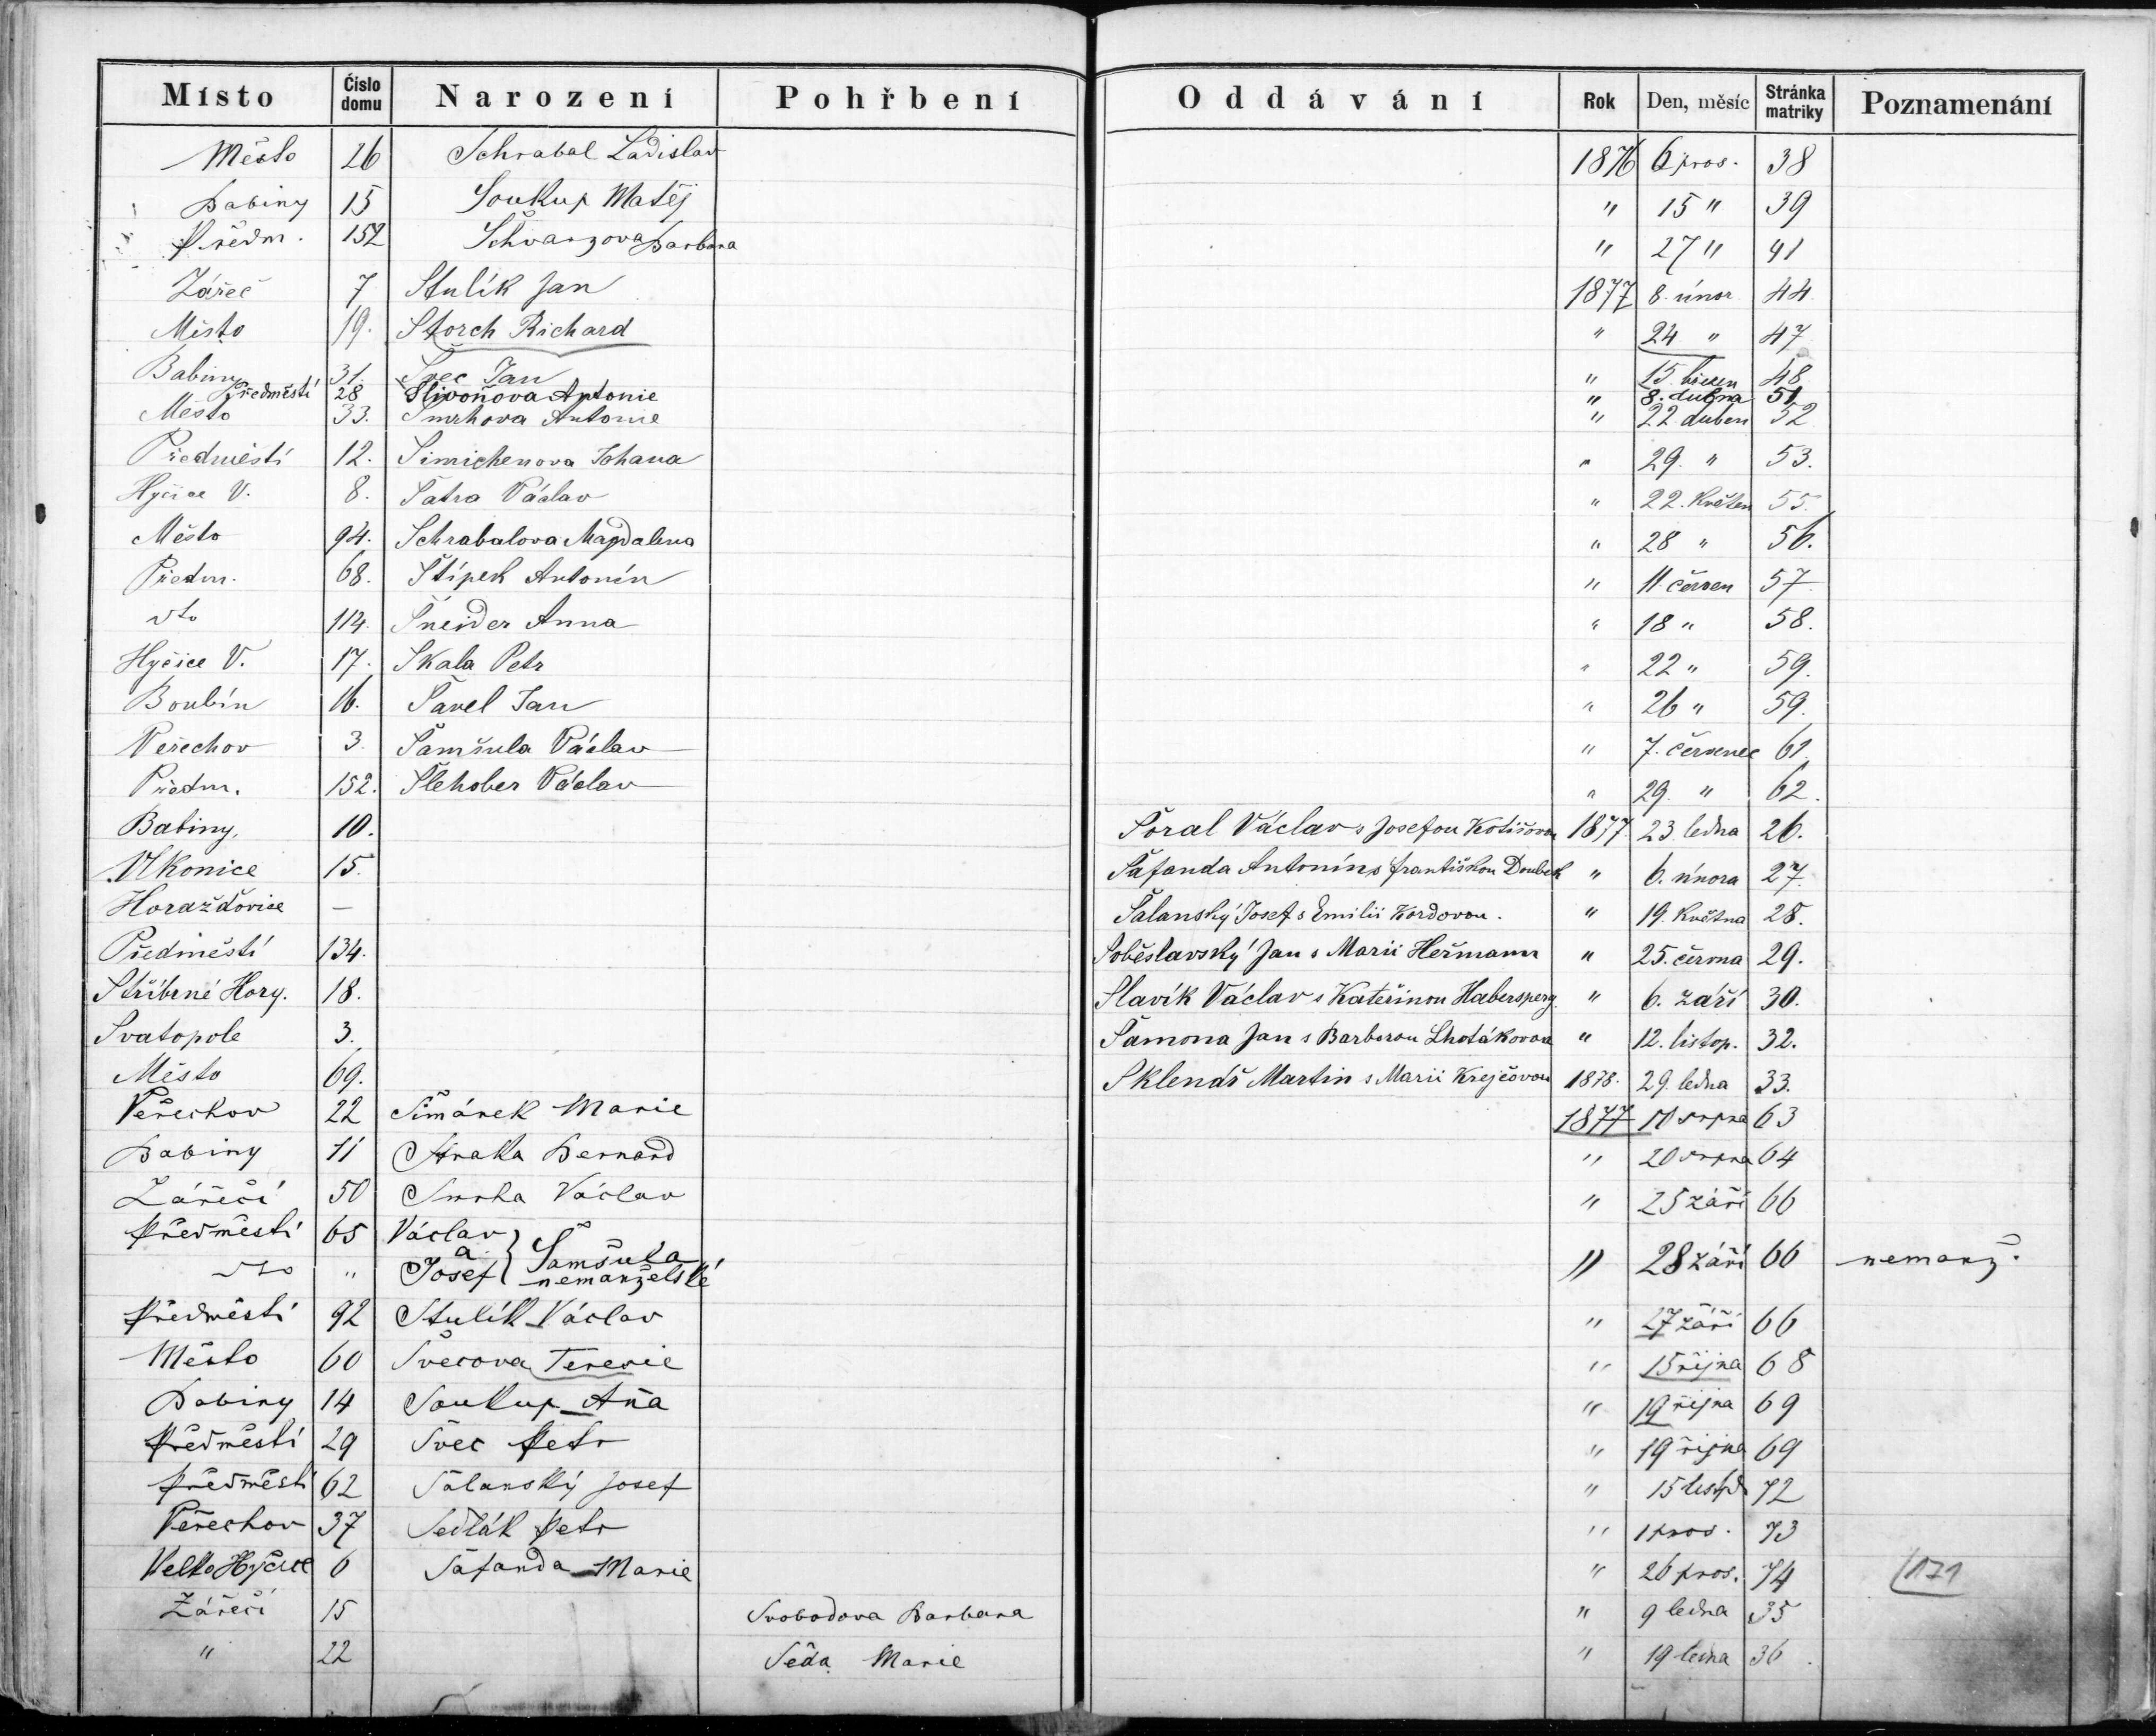 Místo Číslo domu Narození Pohřbení Oddávání Rok Den, měsíc Stránka matriky Poznamenání
Město 26 Schrabal Ladislav 1876 6 pros. 38
Babiny 15 Soukup Matěj " 15 " 39
Předm. 152 Schvarzova Barbora " 27 " 41
Zářeč 7 Stulík Jan 1877 8. únor 44
Město 19. Storch Richard " 24 " 47
Babiny 31. Švec Jan " 15. březen 48
Předměstí 28 Slivoňova Antonie " 8. dubna 51
Město 33. Smrhova Antonie " 22 duben 52
Předměstí 12. Simichenova Johana " 29. " 53.
Hyčice V. 8. Šatra Václav " 22. květen 55.
Město 94. Schrabalova Magdalena " 28 " 56.
Předm. 68. Štípek Antonín " 11. červen 57
dto 114. Šneider Anna " 18 " 58.
Hyčice V. 17. Skala Petr " 22 " 59.
Boubín 16. Šavel Jan " 26 " 59.
Veřechov 3. Šamšula Václav " 7. červenec 61.
Předm. 152. Šlehober Václav " 29. " 62.
Babiny, 10. Šoral Václav s Josefou Kotišovou 1877. 23. ledna 26.
Vlkonice 15. Šafanda Antonín s Františkou Doubek " 6. února 27.
Horažďovice — Šalanský Josef s Emilii Kordovou. " 19. května 28.
Předměstí 134. Soběslavský Jan s Marii Heřmann " 25. června 29.
Stříbrné Hory. 18. Slavík Václav s Kateřinou Habersperg. " 6. září 30.
Svatopole 3. Šamona Jan s Barborou Lhotákovou " 12. listop. 32.
Město 69. Sklenář Martin s Marii Krejčovou 1878. 29. ledna 33.
Veřechov 22 Šimánek Marie 1877 10 srpna 63
Babiny 11 Straka Bernard " 20 srpna 64
Zářečí 50 Smrha Václav " 25 září 66
Předměstí 65 Václav
a Šamšula
dto " Josef nemanželské " 28 září 66 nemanž.
Předměstí 92 Stulík Václav " 27 září 66
Město 60 Švecova Terezie " 15 října 68
Babiny 14 Soukup Aňa " 19 října 69
Předměstí 29 Švec Petr " 19 října 69
Předměstí 62 Šalanský Josef " 15 listpd 72
Veřechov 37 Sedlák Petr " 1 pros. 73
Velko Hyčice 6 Šafanda Marie " 26 pros. 74
171
Zářečí 15 Svobodova Barbara " 9 ledna 35
" 22 Šeda Marie " 19 ledna 36.